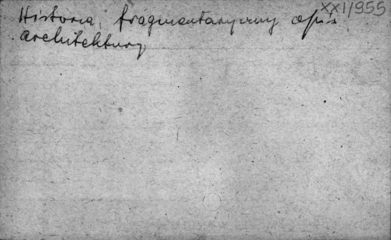 XXI/955
Historia, fragmentaryczny opis
architektury